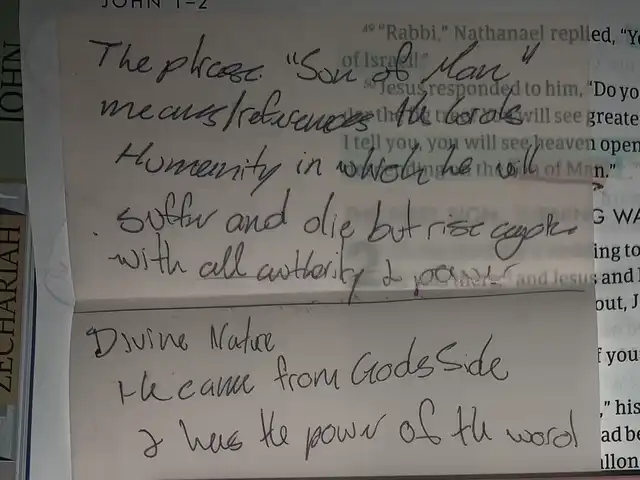 JOHN 1–2
JOHN
ZECHARIAH
The phrase "Son of Man"
means/references the Lords
Humanity in which he will
suffer and die but rise again
with all authority & power
Divine Nature
He came from Gods Side
& has the power of the word
49 "Rabbi," Nathanael replied, "Yo
of Israel!"
50 Jesus responded to him, "Do yo
will see greate
I tell you, you will see heaven open
the Son of Man."
G WA
ing to
and Jesus and
out, J
f you
," his
ad be
llon